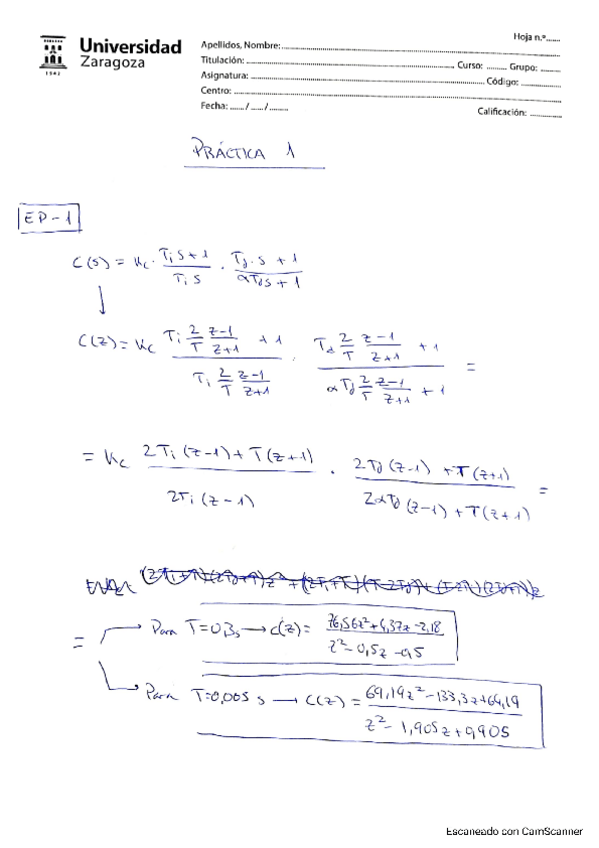 Hoja n.º
Universidad
Zaragoza
1542
Apellidos, Nombre:
Titulación: Curso: Grupo:
Asignatura: Código:
Centro:
Fecha: / / Calificación:
PRÁCTICA 1
EP-1
C(s) = Kc · (Ti s + 1)/(Ti s) · (Td · s + 1)/(αTd s + 1)
↓
C(z) = Kc (Ti 2/T (z-1)/(z+1) + 1)/(Ti 2/T (z-1)/(z+1)) · (Td 2/T (z-1)/(z+1) + 1)/(αTd 2/T (z-1)/(z+1) + 1) =
= Kc (2Ti (z-1) + T(z+1))/(2Ti (z-1)) · (2Td (z-1) + T(z+1))/(2αTd (z-1) + T(z+1)) =
= → Para T=0,3s → C(z) = (76,56z² + 4,37z - 2,18)/(z² - 0,5z - 0,5)
→ Para T=0,005 s → C(z) = (69,19z² - 133,3z + 64,19)/(z² - 1,905z + 0,905)
Escaneado con CamScanner